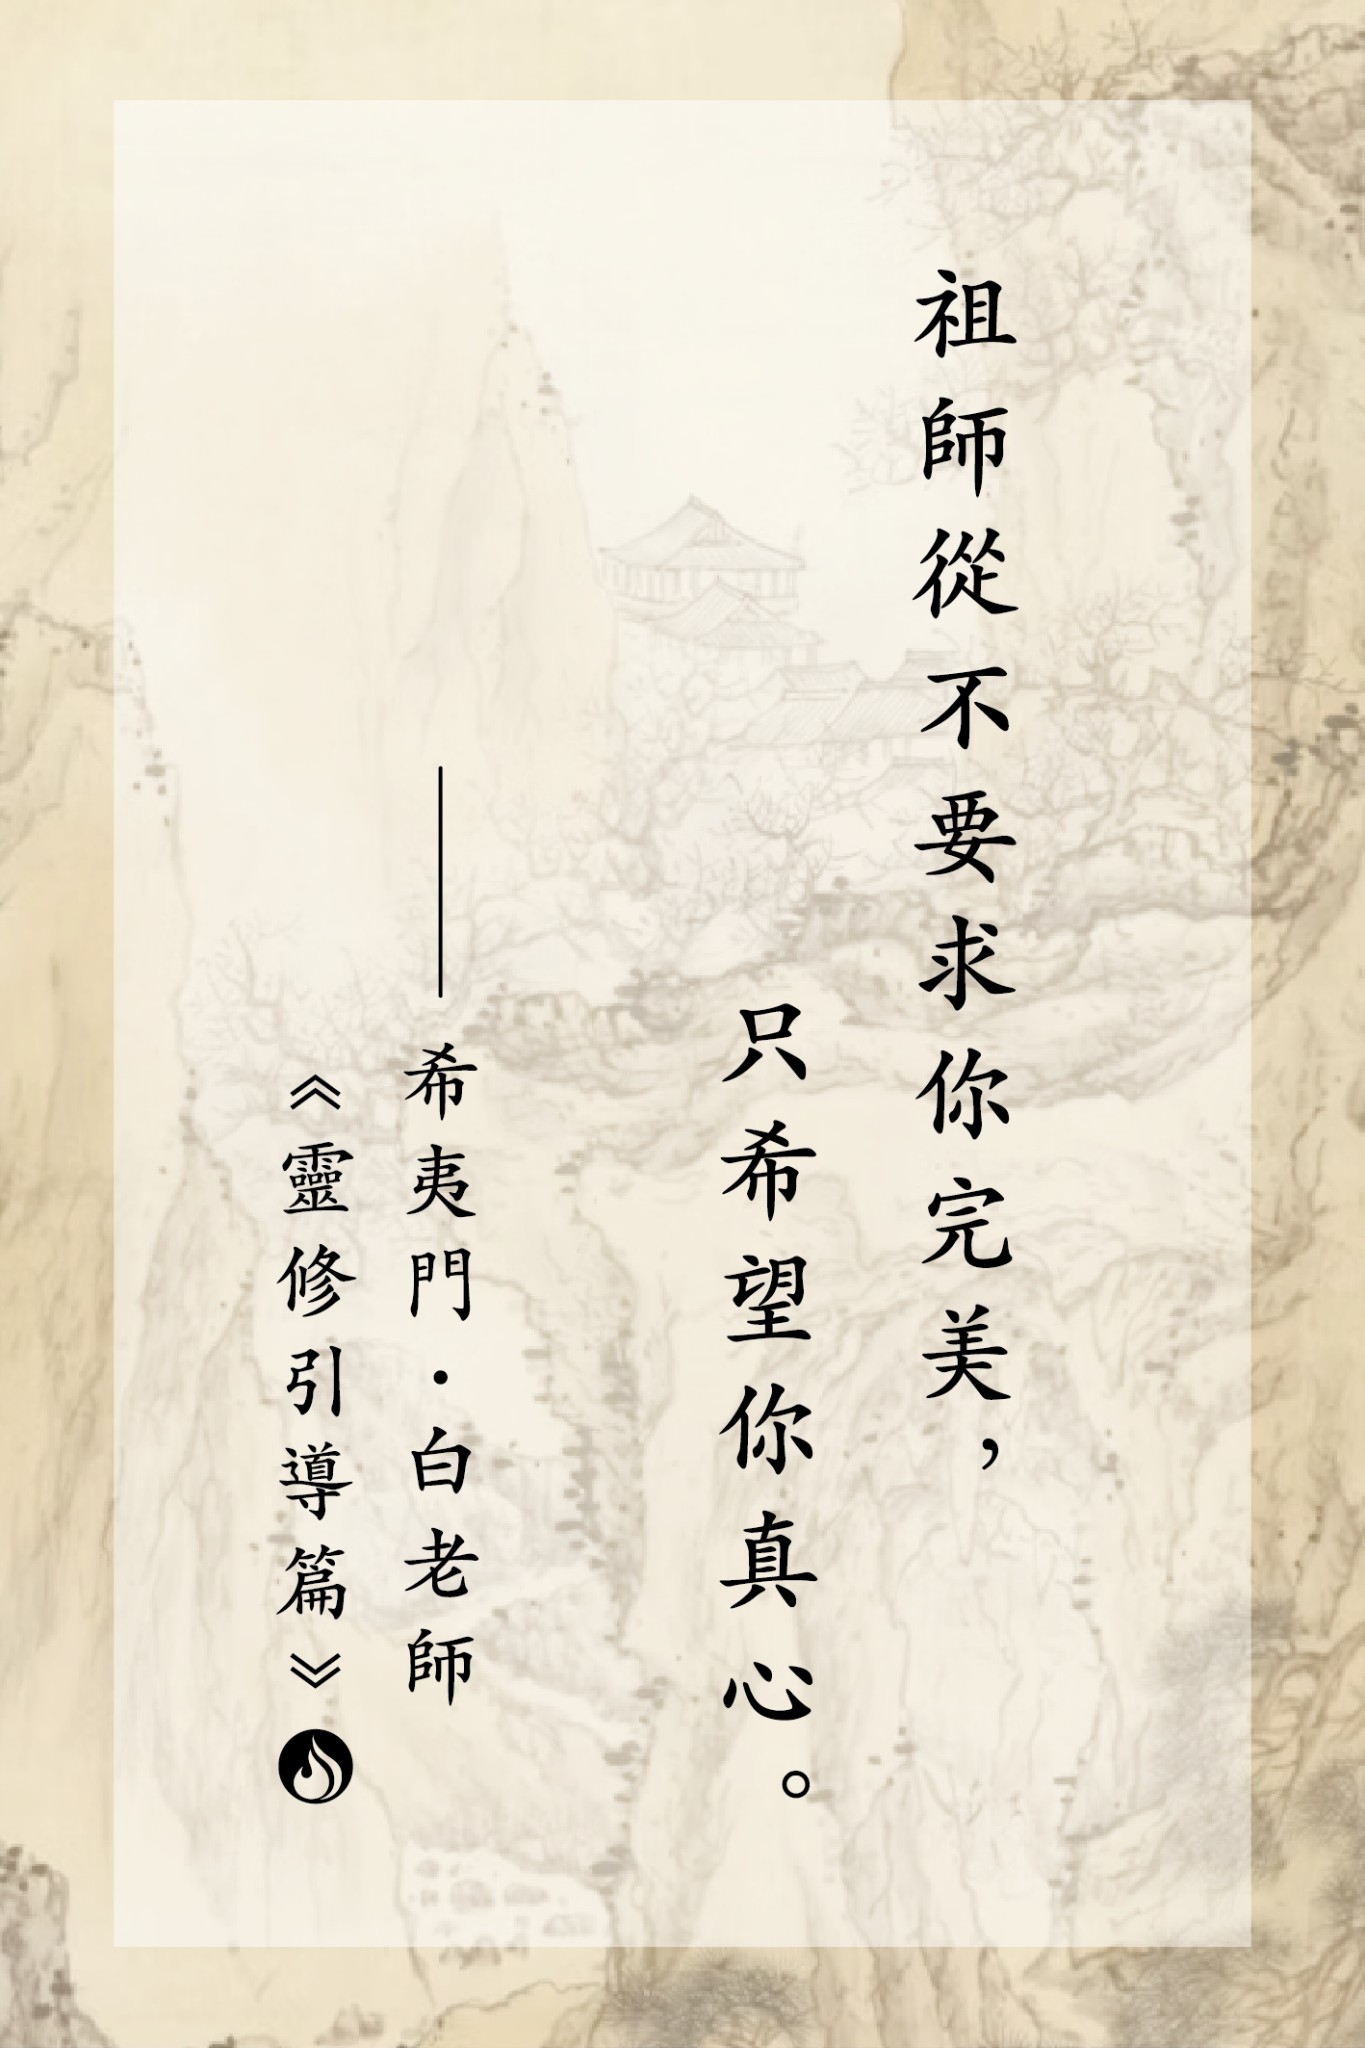 祖師從不要求你完美，
只希望你真心。
——希夷門·白老師
《靈修引導篇》